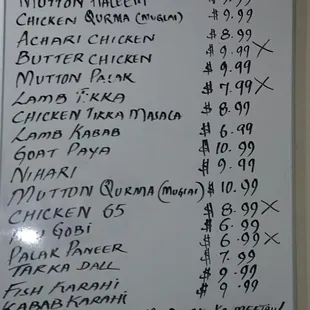 MUTTON HALEEM $ 9.99
CHICKEN QURMA (MUGLAI) $ 9.99
ACHARI CHICKEN $ 8.99
BUTTER CHICKEN $ 9.99 X
MUTTON PALAK $ 9.99
LAMB TIKKA $ 7.99 X
CHICKEN TIKKA MASALA $ 8.99
LAMB KABAB $ 6.99
GOAT PAYA $ 10.99
NIHARI $ 9.99
MUTTON QURMA (MUGLAI) $ 10.99
CHICKEN 65 $ 8.99 X
GOBI $ 6.99
PALAK PANEER $ 6.99 X
TARKA DALL $ 7.99
FISH KARAHI $ 9.99
KABAB KARAHI $ 9.99